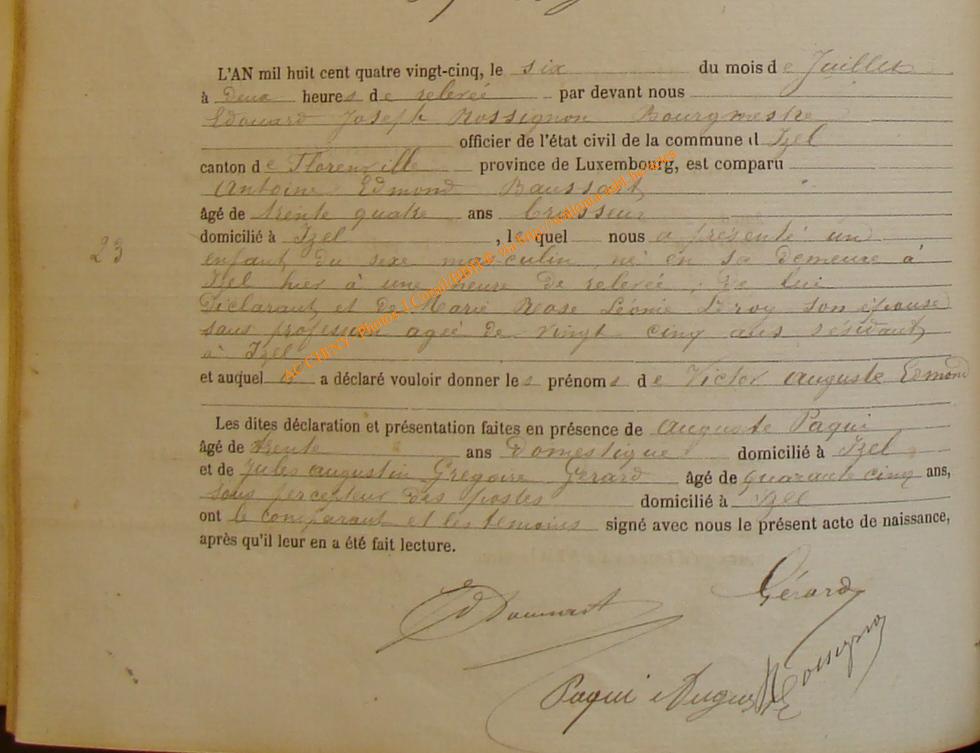 L'AN mil huit cent quatre vingt-cinq, le six du mois de Juillet
à Deux heures de relevée par devant nous
Edouard Joseph Rossignon Bourgmestre
officier de l'état civil de la commune d Izel
canton de Florenville province de Luxembourg, est comparu
Antoine Edmond
âgé de trente quatre ans brasseur
domicilié à Izel, lequel nous a présenté un
23
enfant du sexe masculin, né en sa demeure à
Izel hier à une heure de relevée, de lui
Déclarant et de Marie Rose Léonie son épouse
sans profession agée de vingt cinq ans résidant
à Izel
et auquel il a déclaré vouloir donner les prénoms de Victor Auguste Edmond
Les dites déclaration et présentation faites en présence de Auguste Paqui
âgé de trente ans Domestique domicilié à Izel
et de Jules Augustin Grégoire Gérard âgé de quarante cinq ans,
sous percepteur des postes domicilié à Izel
ont le comparant et les témoins signé avec nous le présent acte de naissance,
après qu'il leur en a été fait lecture.
Gérard
Paqui Auguste Rossignon